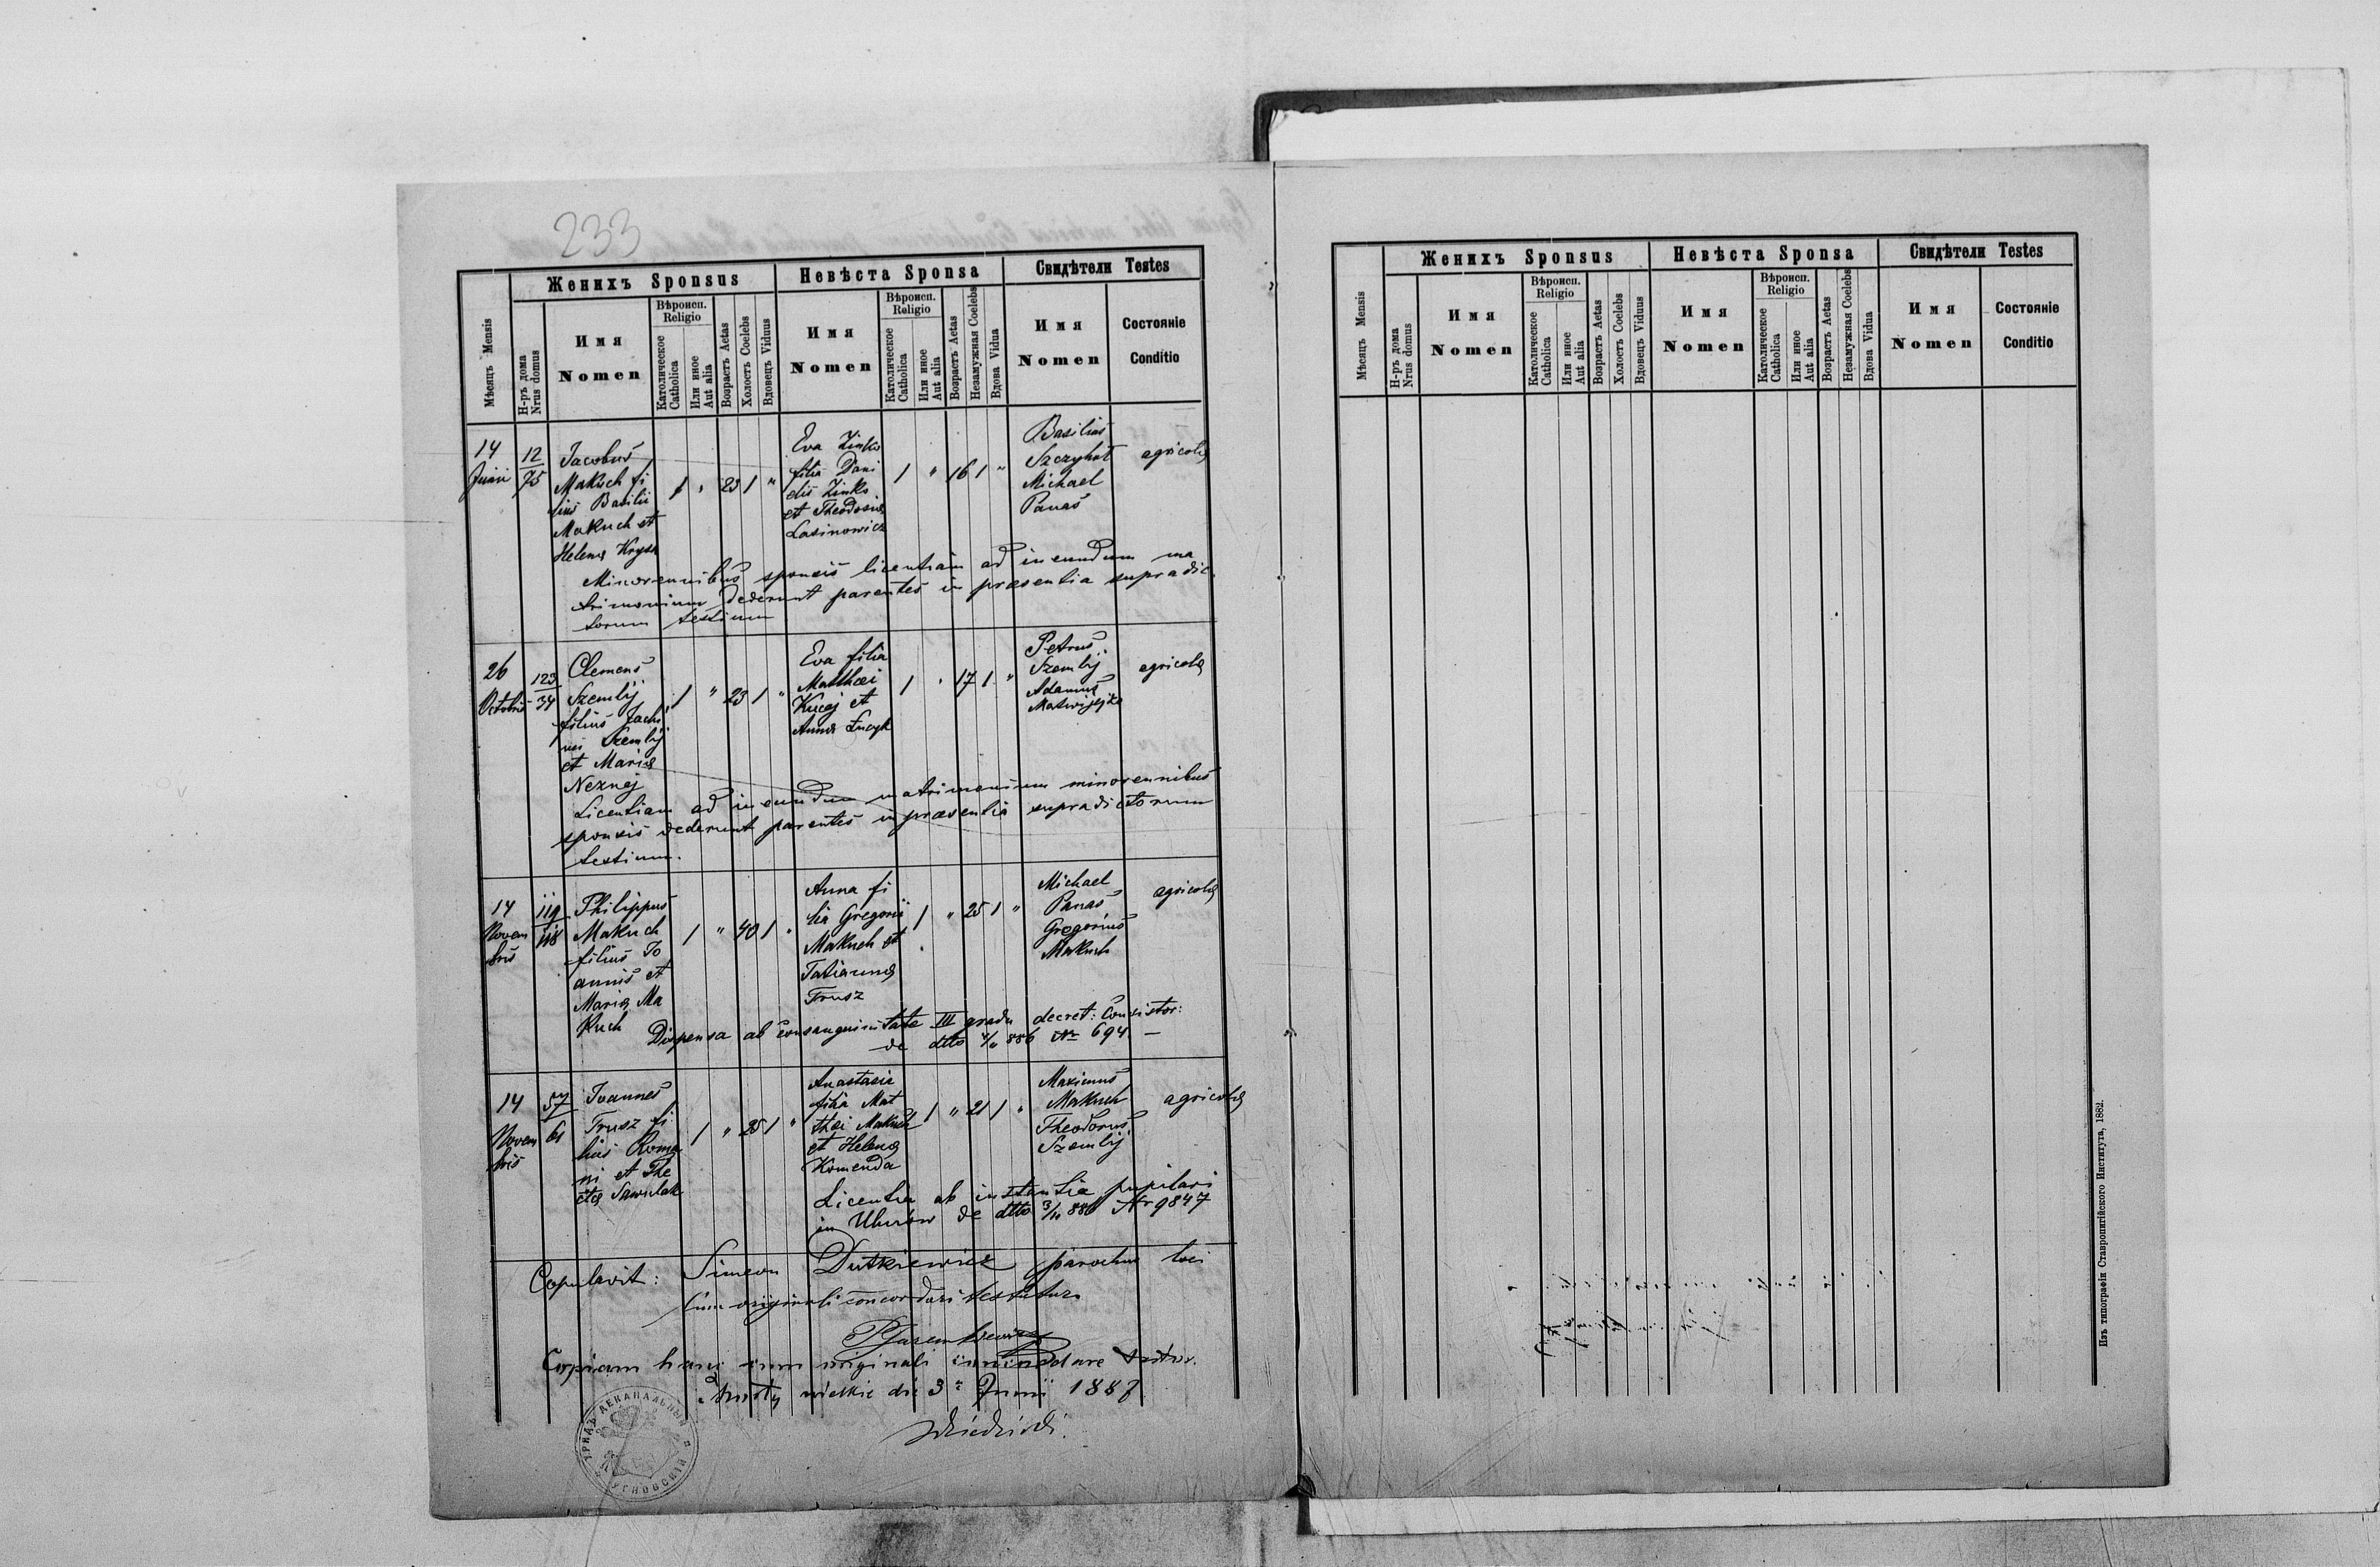 233
Женихъ Sponsus
Невѣста Sponsa
Свидѣтели Testes
Мѣсяцъ Mensis
Н-ръ дома
Nrus domus
Имя
Nomen
Вѣроисп.
Religio
Католическое
Catholica
Или иное
Aut alia
Возрастъ Aetas
Холостъ Coelebs
Вдовецъ Viduus
Имя
Nomen
Вѣроисп.
Religio
Католическое
Catholica
Или иное
Aut alia
Возрастъ Aetas
Незамужная Coelebs
Вдова Vidua
Имя
Nomen
Состояніе
Conditio
14
Junii
12
75
Jacobus
Makuch fi
lius Basilii
Makuch et
Helenæ Krysa
1 " 23 1 "
Eva Zinko
filia Dani
elis Zinko
et Theodosiæ
Lasinowicz
1 " 16 1 "
Basilius
Szczyhot
Michael
Panas
agricolæ
Minorennibus sponsis licentiam ad ineundum ma
trimonium dederunt parentes in præsentia supradic
torum testium
26
Octobris
123
34
Clemens
Szemlij
filius Jachi
mi Szemlij
et Mariæ
Neznej
1 " 23 1 "
Eva filia
Matthæi
Kucaj et
Annæ Łucyk
1 " 17 1 "
Petrus
Szemlij
Adamus
Matwijejko
agricolæ
Licentiam ad ineundum matrimonium minorennibus
sponsis dederunt parentes in præsentia supradictorum
testium.
14
Novem
bris
119
118
Philippus
Makuch
filius Jo
annis et
Mariæ Ma
kuch
1 " 40 1 "
Anna fi
lia Gregorii
Makuch et
Tatiannæ
Trusz
1 " 25 1 "
Michael
Panas
Gregorius
Makuch
agricolæ
Dispensa ab consanguinitate III gradu decret: Consistor:
de dtto 4/11 886 Nr 694 —
14
Novem
bris
57
61
Joannes
Trusz fi
lius Roma
ni et The
clæ Sawulak
1 " 25 1 "
Anastasia
filia Mat
thæi Makuch
et Helenæ
Komenda
1 " 21 1 "
Maximus
Makuch
Theodorus
Szemlij
agricolæ
Licentia ab instantia pupilari
in Uhnów de dtto 3/11 886 Nr 9847
Copulavit: Simeon Dutkiewicz parochus loci
Cum originali concordari testatur
Copiam hanc cum originali
wielkie die 3 Junii 1887
Женихъ Sponsus
Невѣста Sponsa
Свидѣтели Testes
Мѣсяцъ Mensis
Н-ръ дома
Nrus domus
Имя
Nomen
Вѣроисп.
Religio
Католическое
Catholica
Или иное
Aut alia
Возрастъ Aetas
Холостъ Coelebs
Вдовецъ Viduus
Имя
Nomen
Вѣроисп.
Religio
Католическое
Catholica
Или иное
Aut alia
Возрастъ Aetas
Незамужная Coelebs
Вдова Vidua
Имя
Nomen
Состояніе
Conditio
Изъ типографіи Ставропигійского Института, 1882.